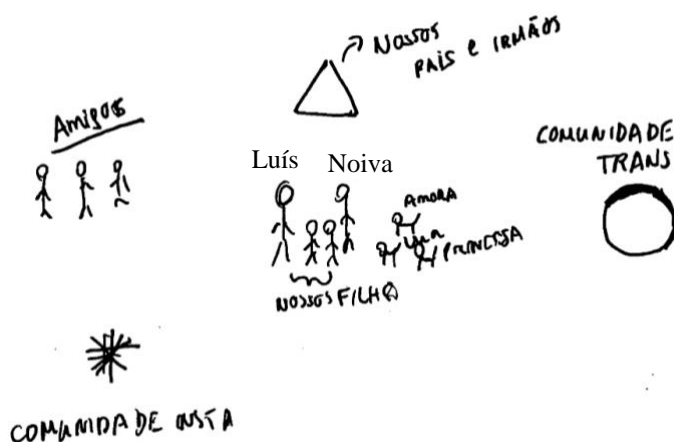 NOSSOS
PAIS E IRMÃOS
Amigos
COMUNIDADE
TRANS
Luís Noiva
AMORA
LUA
PRINCESA
NOSSOS FILHOS
COMUNIDADE INSTA